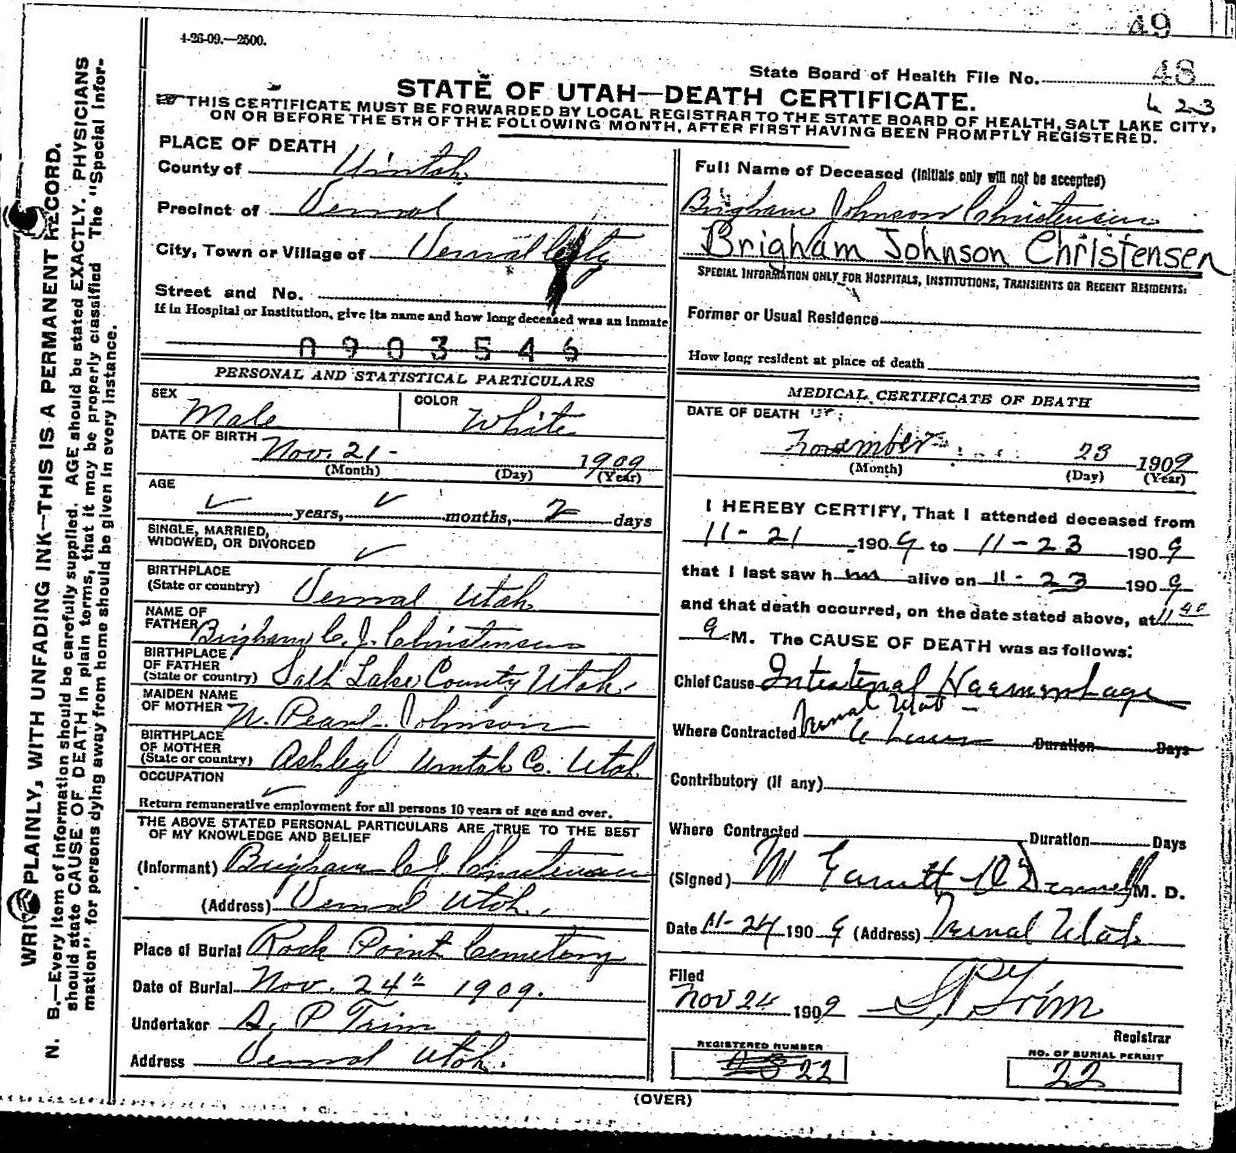 49
4-26-09.—2500.
State Board of Health File No. 48
STATE OF UTAH—DEATH CERTIFICATE.
THIS CERTIFICATE MUST BE FORWARDED BY LOCAL REGISTRAR TO THE STATE BOARD OF HEALTH, SALT LAKE CITY,
ON OR BEFORE THE 5TH OF THE FOLLOWING MONTH, AFTER FIRST HAVING BEEN PROMPTLY REGISTERED.
23
WRITE PLAINLY, WITH UNFADING INK—THIS IS A PERMANENT RECORD.
N. B.—Every item of information should be carefully supplied. AGE should be stated EXACTLY. PHYSICIANS
should state CAUSE OF DEATH in plain terms, that it may be properly classified The "Special Infor-
mation" for persons dying away from home should be given in every instance.
PLACE OF DEATH
County of Uintah
Precinct of Vernal
City, Town or Village of Vernal City
Street and No.
If in Hospital or Institution, give its name and how long deceased was an inmate
0903546
PERSONAL AND STATISTICAL PARTICULARS
SEX Male
COLOR White
DATE OF BIRTH Nov. 21 - 1909
(Month) (Day) (Year)
AGE
years, months, 2 days
SINGLE, MARRIED,
WIDOWED, OR DIVORCED
BIRTHPLACE
(State or country) Vernal Utah
NAME OF
FATHER Brigham C. J. Christensen
BIRTHPLACE
OF FATHER
(State or country) Salt Lake County Utah.
MAIDEN NAME
OF MOTHER N. Pearl Johnson
BIRTHPLACE
OF MOTHER
(State or country) Ashley Uintah Co. Utah
OCCUPATION
Return remunerative employment for all persons 10 years of age and over.
THE ABOVE STATED PERSONAL PARTICULARS ARE TRUE TO THE BEST
OF MY KNOWLEDGE AND BELIEF
(Informant) Brigham C. J. Christensen
(Address) Vernal Utah.
Place of Burial Rock Point Cemetery
Date of Burial Nov. 24th 1909.
Undertaker S. P. Trim
Address Vernal Utah.
Full Name of Deceased (Initials only will not be accepted)
Brigham Johnson Christensen
Brigham Johnson Christensen
SPECIAL INFORMATION ONLY FOR HOSPITALS, INSTITUTIONS, TRANSIENTS OR RECENT RESIDENTS:
Former or Usual Residence
How long resident at place of death
MEDICAL CERTIFICATE OF DEATH
DATE OF DEATH
November 23 1909
(Month) (Day) (Year)
I HEREBY CERTIFY, That I attended deceased from
11-21 1909 to 11-23 1909
that I last saw him alive on 11-23 1909
and that death occurred, on the date stated above, at 11 40
a M. The CAUSE OF DEATH was as follows:
Chief Cause Intestinal Haemorrhage
Where Contracted Vernal Utah Duration Days
Contributory (if any)
Where Contracted Duration Days
(Signed) M. D.
Date 11-24 1909 (Address) Vernal Utah
Filed
Nov 24 1909 S. P. Trim
Registrar
REGISTERED NUMBER
22
NO. OF BURIAL PERMIT
22
(OVER)